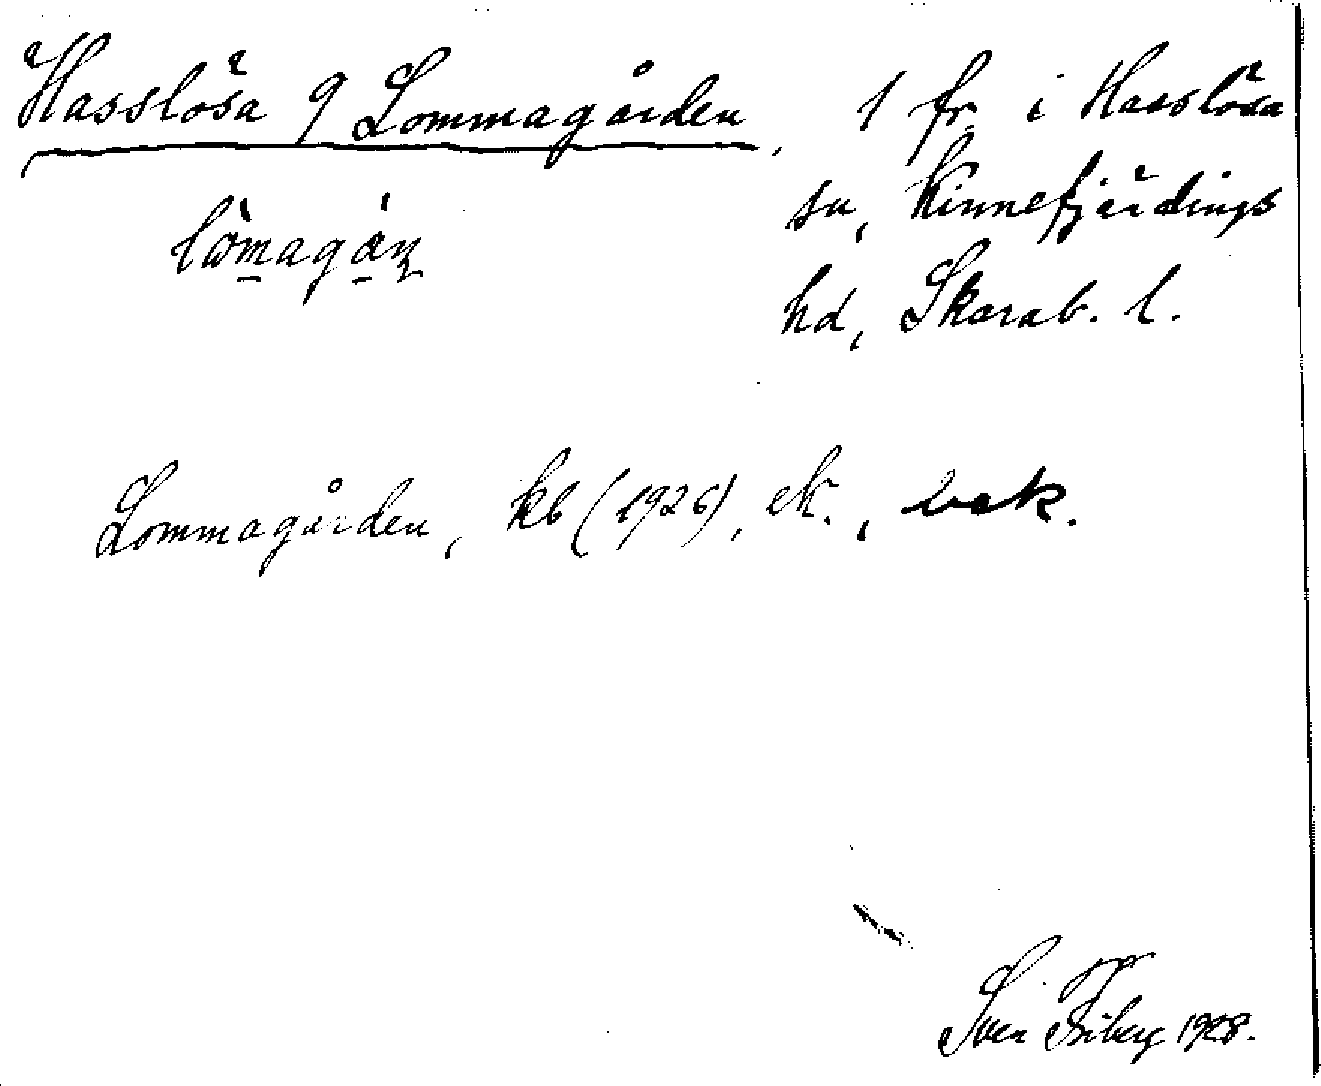 Hasslösa 9 Lommagården, 1 fr. i Hasslösa
sn, Kinnefjärdings
hd, Skarab. l.
Lommagården, kb (1926), ek.,
Sven Friberg 1928.